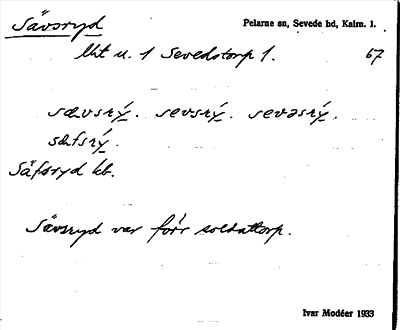 Sävsryd Pelarne sn, Sevede hd, Kalm. l.
lht u. 1 Sevedstorp 1. 67
sævsrý. sevsrý. sevəsrý.
sæfsrý.
Säfsryd kb.
Sävsryd var förr soldattorp.
Ivar Modéer 1933